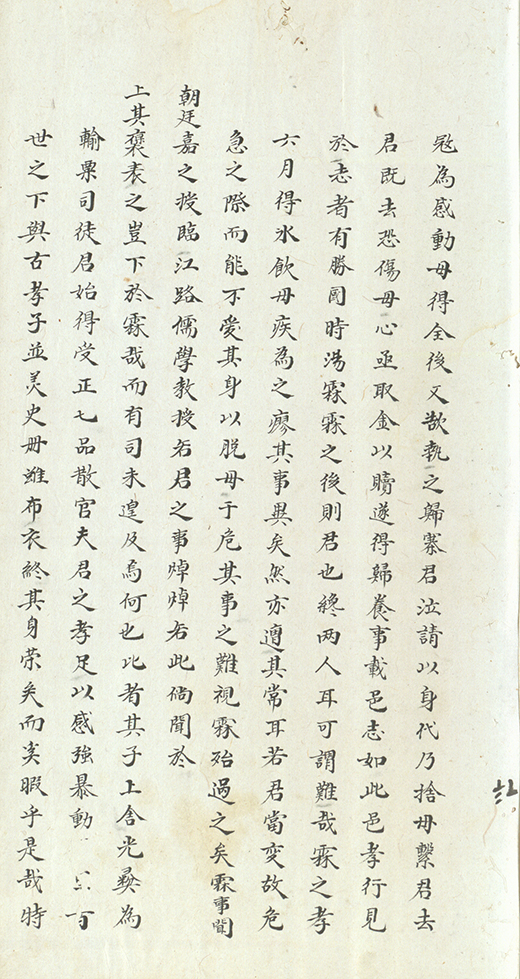 寇為感動母得全後又欲執之歸寨君泣請以身代乃捨母繫君去
君既去恐傷母心亟取金以贖遂得歸養事載邑志如此邑孝行見
於志者有勝國時湯霖霖之後則君也終两人耳可謂難哉霖之孝
六月得氷飲母疾為之廖其事異矣然亦適其常耳若君當变故危
急之際而能不愛其身以脱母于危其事之難視霖殆過之矣霖事聞
朝廷嘉之授臨江路儒學教授若君之事焯焯若此倘聞於
上其褒表之豈下於霖哉而有司未遑及焉何也比者其子上舍光彝為
輸粟司徒君始得受正七品散官夫君之孝足以感強暴動
世之下與古孝子並美史册雖布衣終其身荣矣而奚暇乎是哉時